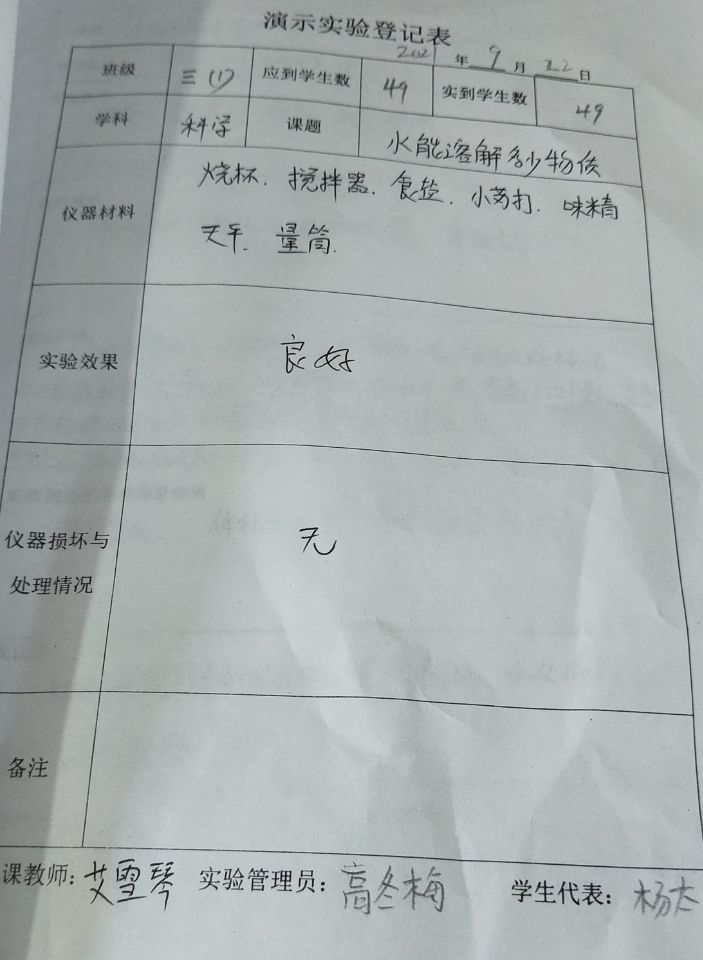 演示实验登记表
2021 年 9 月 22 日
班级 三(1) 应到学生数 49 实到学生数 49
学科 科学 课题 水能溶解多少物质
仪器材料 烧杯. 搅拌器. 食盐. 小苏打. 味精
天平. 量筒.
实验效果 良好
仪器损坏与
处理情况 无
备注
课教师: 艾雪琴 实验管理员: 高冬梅 学生代表: 杨